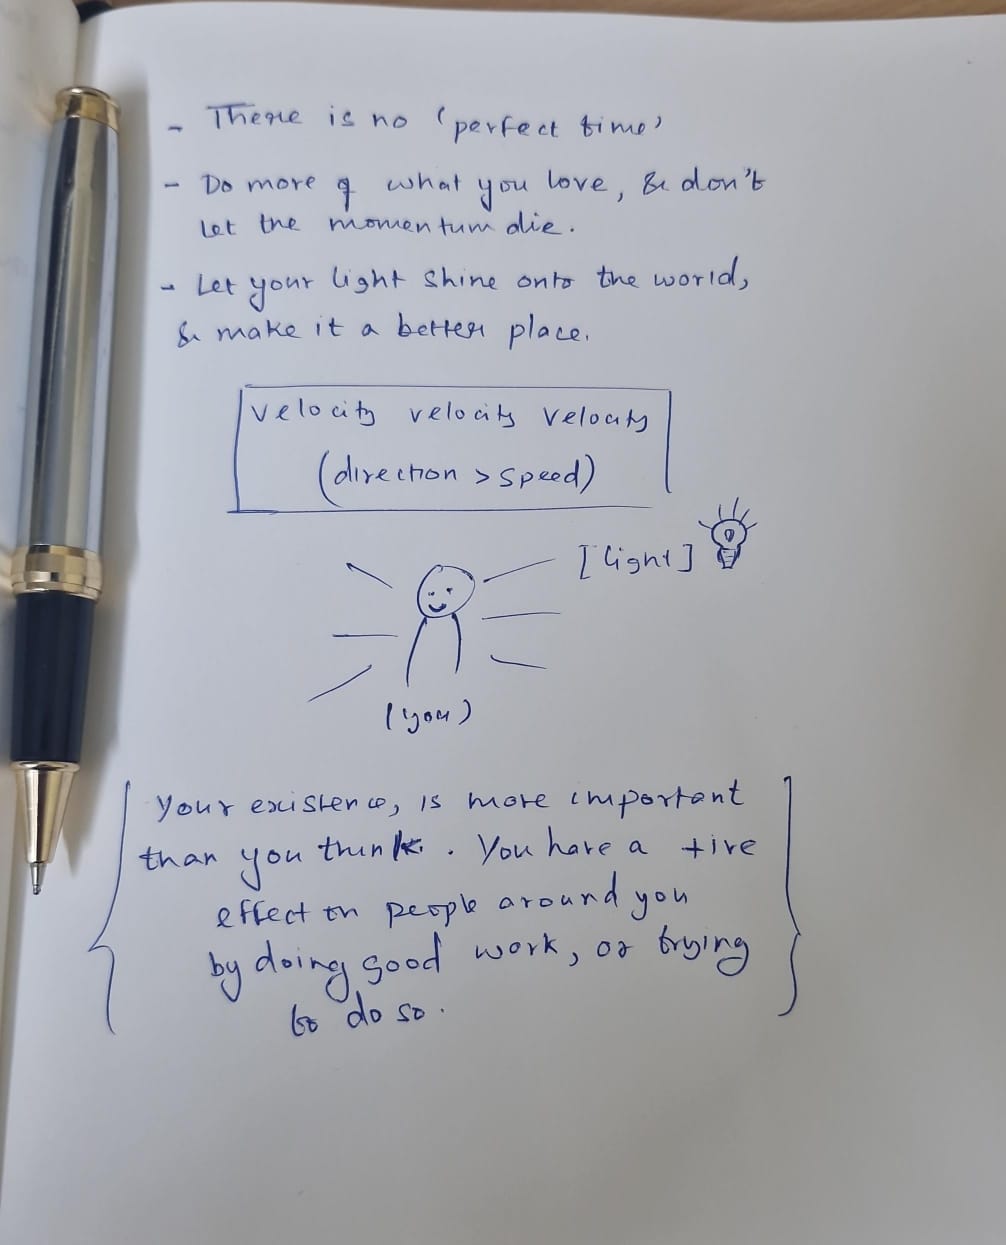 - There is no 'perfect time'
- Do more of what you love, & don't
let the momentum die.
- Let your light shine onto the world,
& make it a better place.
velocity velocity velocity
(direction > speed)
[light]
(you)
Your existence, is more important
than you think. You have a +ive
effect on people around you
by doing good work, or trying
to do so.